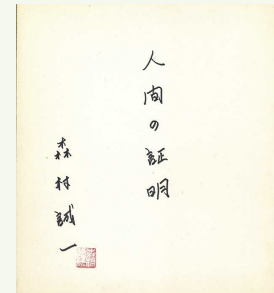 人間の証明
森村誠一